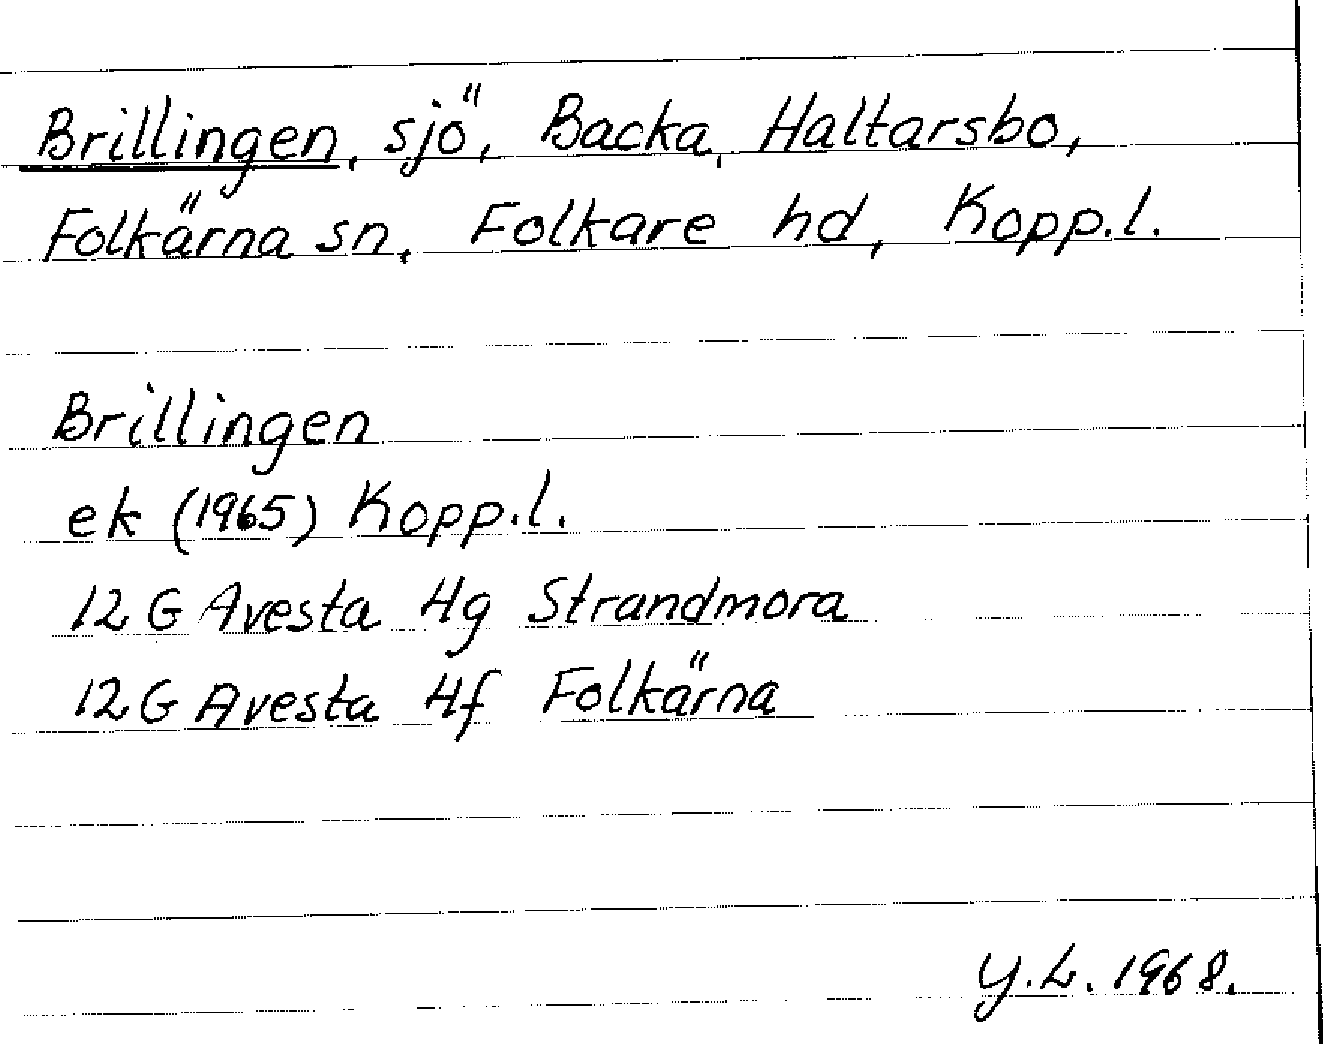 Brillingen, sjö, Backa, Haltarsbo,
Folkärna sn, Folkare hd, Kopp.l.
Brillingen
ek (1965) Kopp.l.
12G Avesta 4g Strandmora
12G Avesta 4f Folkärna
Y.L. 1968.